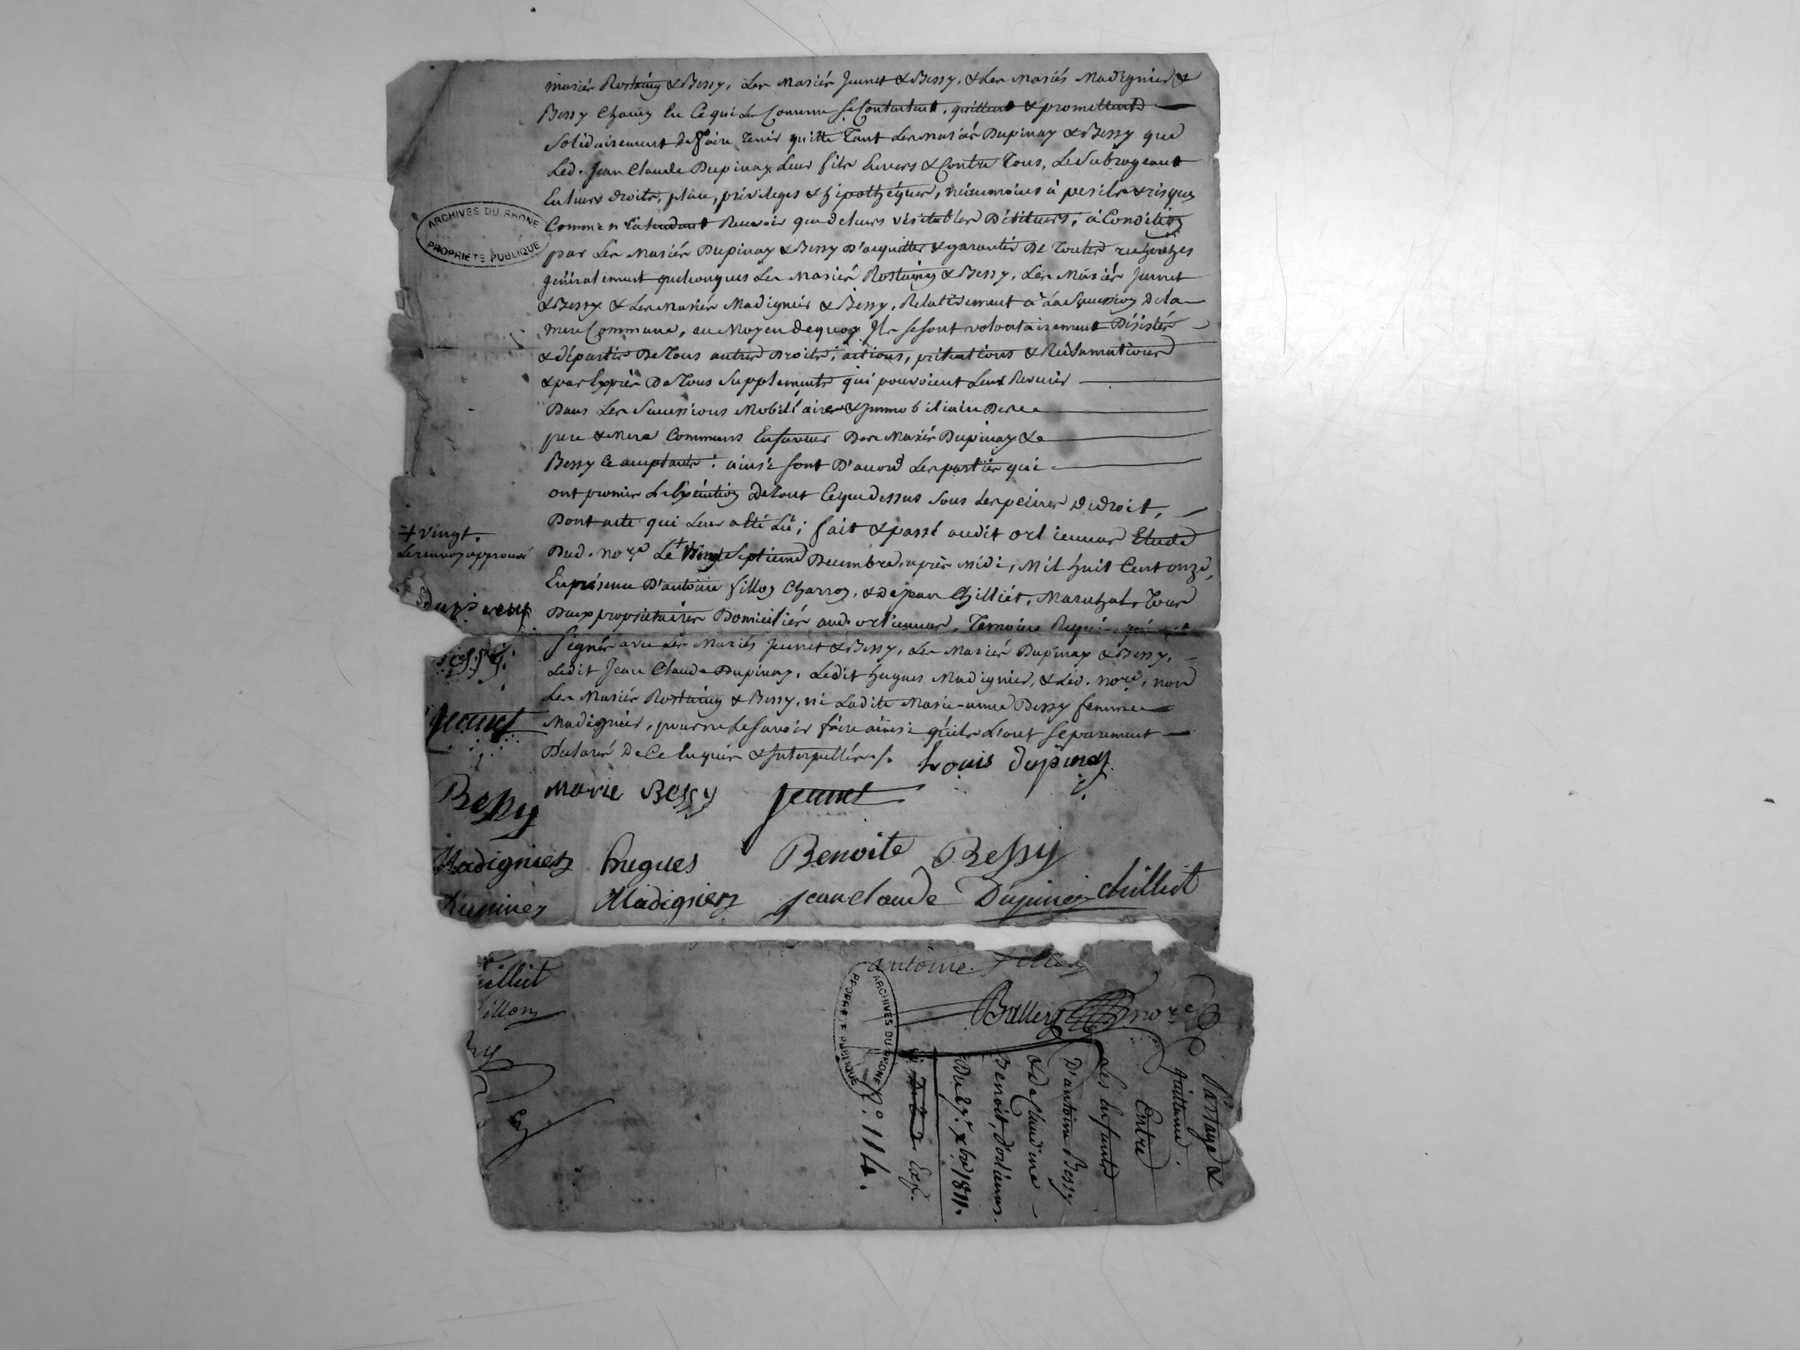 mariés Rostaing & Bessy, Les Mariés Jeunet & Bessy, & Les Mariés Madignier &
Bessy Chacun en ce qui Le Concerne se Contentent, quittent & promettent
Solidairement de faire tenir quitte tant Les Mariés Dupinay & Bessy que
Led. Jean Claude Dupinay leur fils Envers & Contre Tous, Le Subrogeant
En leurs droits, place, privileges & hipothéques, néanmoins à perils & risques
Comme n'entendant Recevoir que de leurs véritables Débiteurs, à Condition
par Les Mariés Dupinay & Bessy D'acquitter & garantir De Toutes recherches
généralement quelconques Les Mariés Rostaing & Bessy, Les Mariés Jeunet
& Bessy & Les Mariés Madignier & Bessy, Relativement à la Succession de la
mere Commune, au Moyen de quoy Ils se sont volontairement Désistés
& départis De Tous autres Droits, actions, prétentions & Réclamations
& par Exprès De Tous Supplements qui pouvoient Leur Revenir
Dans Les Successions Mobiliaires & Immobiliaire Des
pere & Mere Communs En faveur Des Mariés Dupinay &
Bessy Acceptants: ainsi sont D'accord Les parties qui
ont promis L'Exécution De tout Ce que dessus sous Les peines De droit,
Dont acte qui Leur a été Lû; fait & passé audit orlienas Etude
+ vingt.
Le renvoy approuvé
Dud. nore. Le + Vingt Septieme Decembre, après midi, Mil huit Cent onze,
En présence D'antoine fillon Charron, & De jean Chilliet, Marechal, Tous
Dupinay
Deux propriétaires Domiciliés aud. orlienas, Temoins Requis qui ont
Signés avec Les Mariés Jeunet & Bessy, Les Mariés Dupinay & Bessy,
Ledit Jean Claude Dupinay, Ledit hugues Madignier, & Led. nore. non
Les Mariés Rostaing & Bessy, ni Ladite Marie-anne Bessy femme
jeunet
Madignier, pour ne Le Savoir faire ainsi qu'ils L'ont Séparement
Déclaré De Ce Enquis & Interpellés./. Louis dupinay
Bessy Marie Bessy jeunet
Madignier hugues Benoite Bessy
Dupiney Madignier jean claude Dupiney chilliet
chilliet antoine fillon
fillon
nore
Partage &
quittance
Entre
Les Enfants
D'antoine Bessy
& de Claudine
Benoit, d'orlienas.
Du 27. Xbre 1811.
Exp.
N°. 114.
ARCHIVES DU RHONE
PROPRIETE PUBLIQUE
ARCHIVES DU RHONE
PROPRIETE PUBLIQUE